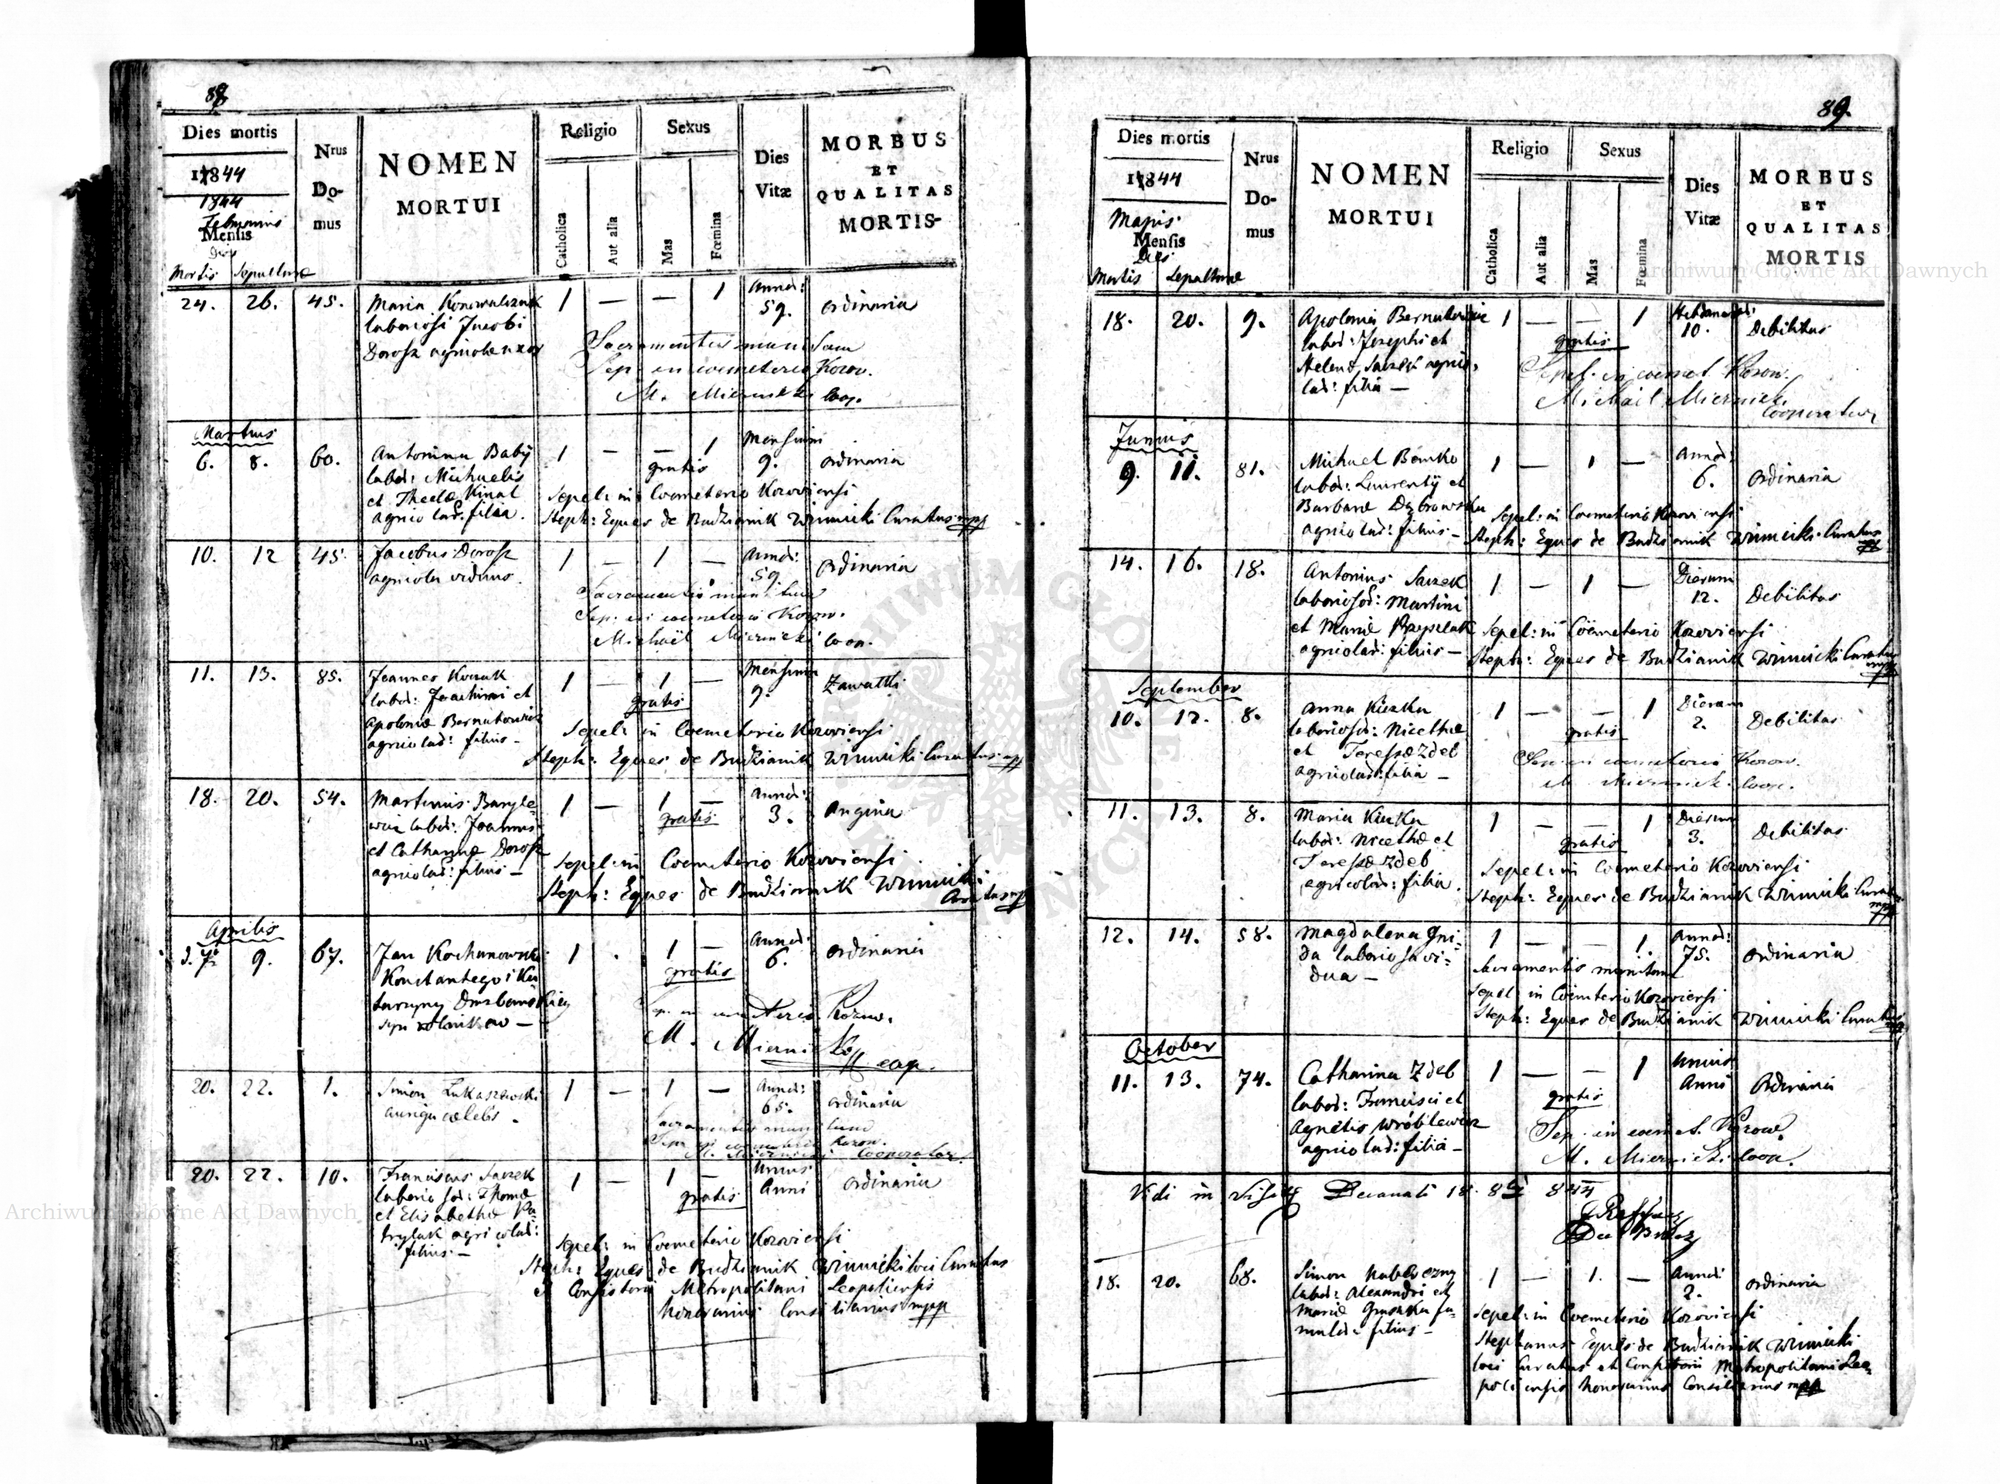 88.
Dies mortis
1844
1844
Februarius
Mensis
Dies
Mortis Sepulturae
Nrus
Do-
mus
NOMEN
MORTUI
Religio
Catholica
Aut alia
Sexus
Mas
Fœmina
Dies
Vitæ
MORBUS
ET
QUALITAS
MORTIS
24. 26. 45. Maria Konowalczuk 1 — — 1 Annor: 59. ordinaria
laboriosi Jacobi
Dorosz agricolae uxor
Sacramentis munitam
Sep. in coemeterio Korow.
M. Miernicki Coop.
Martius
6. 8. 60. Antonina Babÿ 1 — — 1 Mensium 9. ordinaria
labor: Michaelis
et Theclæ Kinal
agricolar. filia.
gratis
Sepel: in Coemeterio Kozoviensi
Steph: Eques de Budzianik Winnicki Curatus mpp
10. 12 45. Jacobus Dorosz 1 — 1 — Annor: 59. ordinaria
agricola viduus.
Sacramentis munitum
Sep. in coemeterio Korow.
Michaël Miernicki Coop.
11. 13. 85. Joannes Kozak 1 — 1 — Mensium 9.
labor: Joachimi et
Apoloniæ Bernatowicz
agricolar: filius —
gratis
Sepel: in Coemeterio Kozoviensi
Steph: Eques de Budzianik Winnicki Curatus mpp
18. 20. 54. Martinus Baryle- 1 — 1 — Annor: 3. Angina
wicz labor: Joannis
et Catharinæ Dorosz
agricolar: filius —
gratis
Sepel: in Coemeterio Kozoviensi
Steph: Eques de Budzianik Winnicki
Curatus mpp
Aprilis
7. 9. 67. Jan Kochanowski 1 . 1 — Annor: 6. ordinaria
Konstantego i Ka-
tarzyny
syn rolników —
gratis
Sep. in coemeterio Korow.
M. Miernicki
coop.
20. 22. 1. Simon Lukaszewski 1 — 1 — Annor: 65. ordinaria
cælebs.
Sacramentis munitum
Sep. in coemeterio Korow.
M. Miernicki Cooperator
20. 22. 10. Franciscus Saczek 1 — 1 — Unius Anni ordinaria
laboriosor: Thomæ
et Elisabethæ Pa-
trylak agricolar:
filius —
gratis
Sepel: in Coemeterio Kozoviensi
Steph: Eques de Budzianik Winnicki loci Curatus
et Consistorii Metropolitani Leopoliensis
honorarius Consiliarius mpp
89.
Dies mortis
1844
Majus
Mensis
Dies
Mortis Sepulturae
Nrus
Do-
mus
NOMEN
MORTUI
Religio
Catholica
Aut alia
Sexus
Mas
Fœmina
Dies
Vitæ
MORBUS
ET
QUALITAS
MORTIS
18. 20. 9. Apolonia Bernatowicz 1 — — 1 10. Debilitas
labor: Josephi et
Helenæ Saczek agrico-
lar: filia —
gratis
Sepel. in coemet. Korow.
Michaël Miernicki
Cooperator
Junius
9. 11. 81. Michael Bemko 1 — 1 — Annor: 6. ordinaria
labor: Laurentÿ et
Barbaræ Dąbrowska
agricolar: filius —
Sepel: in Coemeterio Kozoviensi
Steph: Eques de Budzianik Winnicki Curatus
mpp
14. 16. 18. Antonius Saczek 1 — 1 — Dierum 12. Debilitas
laboriosor: Martini
et Mariæ
agricolar: filius —
Sepel: in Coemeterio Kozoviensi
Steph: Eques de Budzianik Winnicki Curatus
mpp
September
10. 12. 8. Anna Kiczka 1 — — 1 Dierum 2. Debilitas
laboriosor: Nicethæ
et Teressæ Zdeb
agricolar: filia —
gratis
Sep. in coemeterio Korow.
M. Miernicki Coop.
11. 13. 8. Maria Kiczka 1 — — 1 Dierum 3. Debilitas
labor: Nicethæ et
Teressæ Zdeb
agricolar: filia.
gratis
Sepel: in Coemeterio Kozoviensi
Steph: Eques de Budzianik Winnicki Curatus
mpp
12. 14. 58. Magdalena Gni- 1 — — 1. Annor: 75. ordinaria
da laboriosa vi-
dua —
Sacramentis munitam
Sepel: in Coemeterio Kozoviensi
Steph: Eques de Budzianik Winnicki Curatus
mpp
October
11. 13. 74. Catharina Zdeb 1 — — 1 Unius Anni ordinaria
labor: Francisci et
Agnetis Wróblewicz
agricolar: filia —
gratis
Sep. in coemet. Korow.
M. Miernicki Coop.
Vidi in Decanali 18. 844
18. 20. 68. Simon 1 — 1. — Annor: 2. ordinaria
labor: Alexandri et
Mariæ fa-
mulor: filius —
Sepel: in Coemeterio Kozoviensi
Stephanus Eques de Budzianik Winnicki
loci Curatus et Consistorii Metropolitani Leo-
poliensis honorarius Consiliarius mpp
Archiwum Główne Akt Dawnych
Archiwum Główne Akt Dawnych
ARCHIWUM GŁÓWNE AKT DAWNYCH